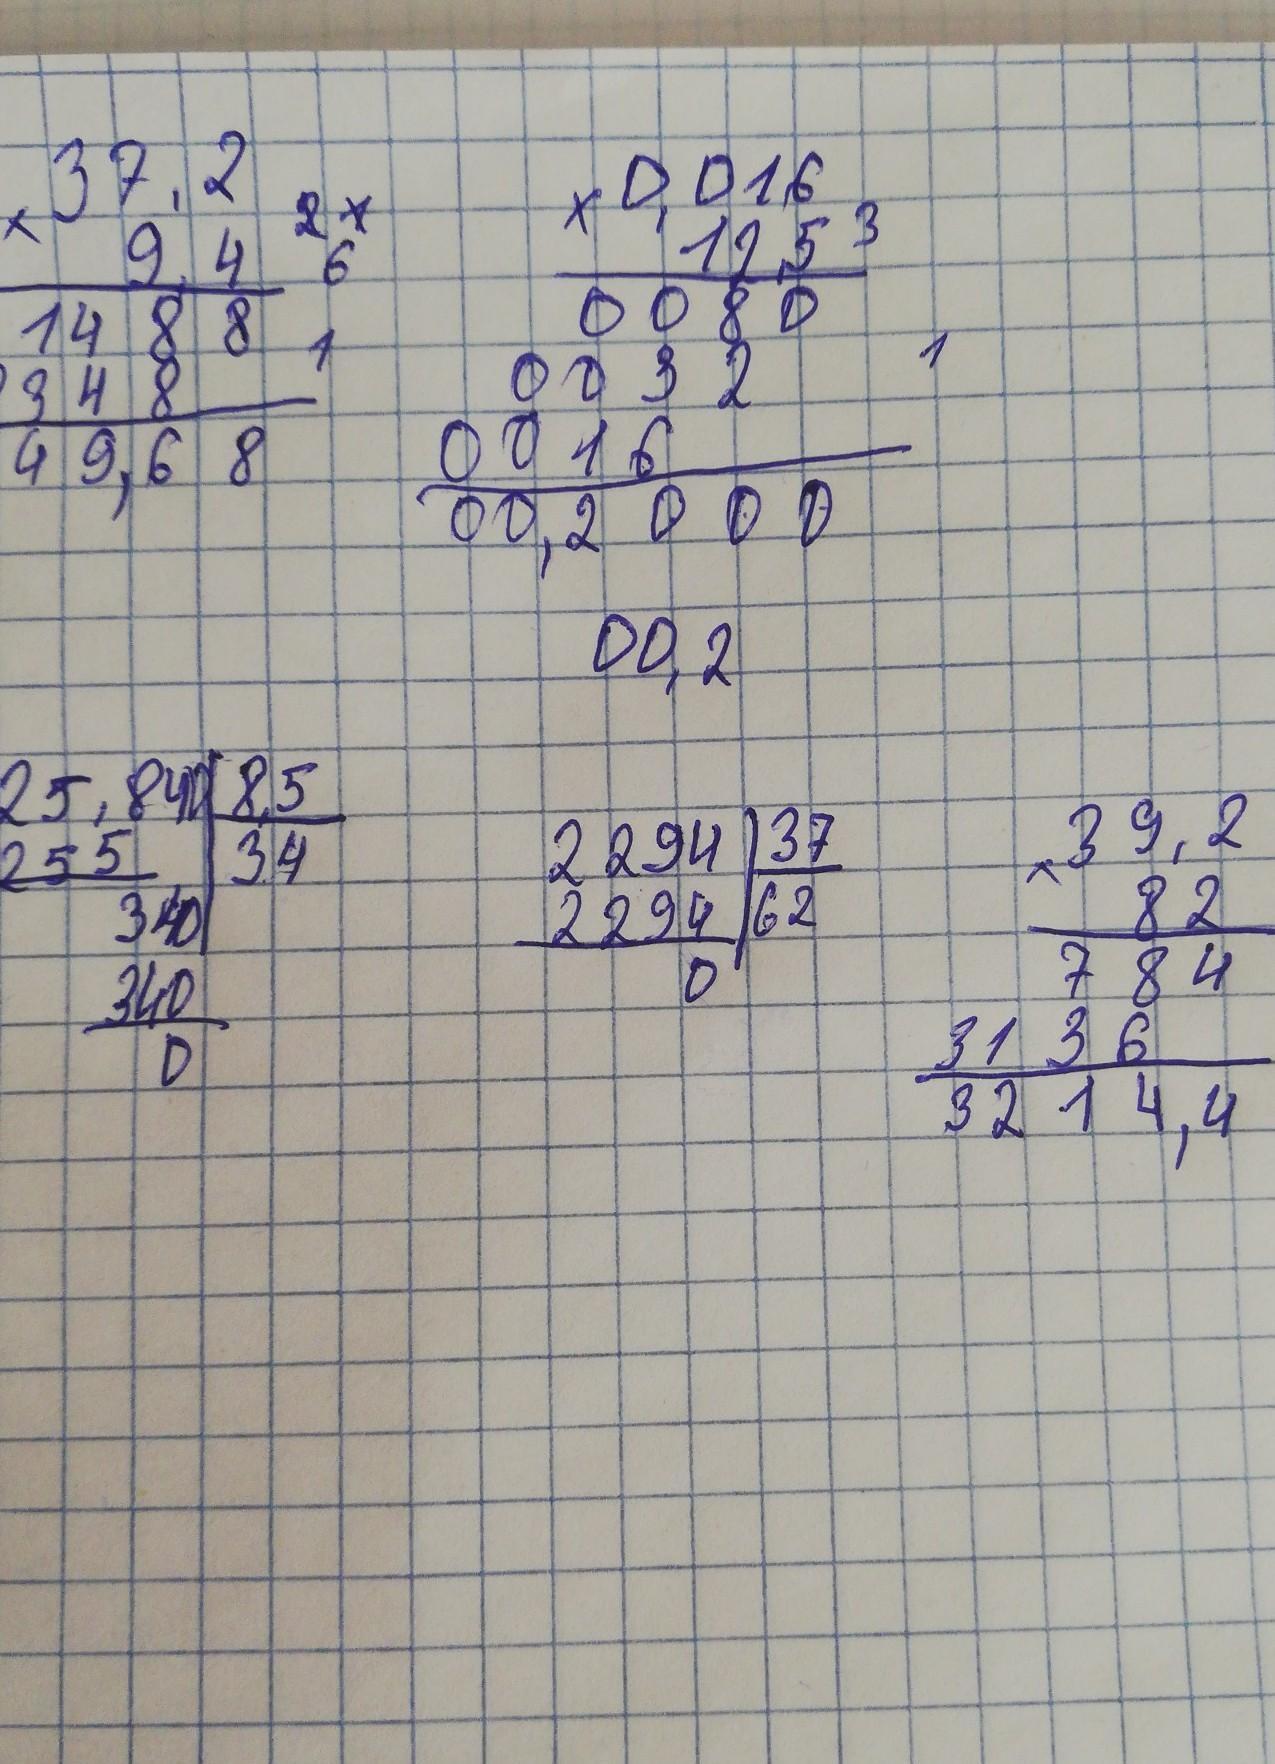 × 37,2
9,4
2 ×
6
1488
1
348
49,68
× 0,016
12,5 3
0080
0032
1
0016
00,2000
00,2
25,840 8,5
255 34
340
340
0
2294 37
2294 62
0
× 39,2
82
784
3136
3214,4